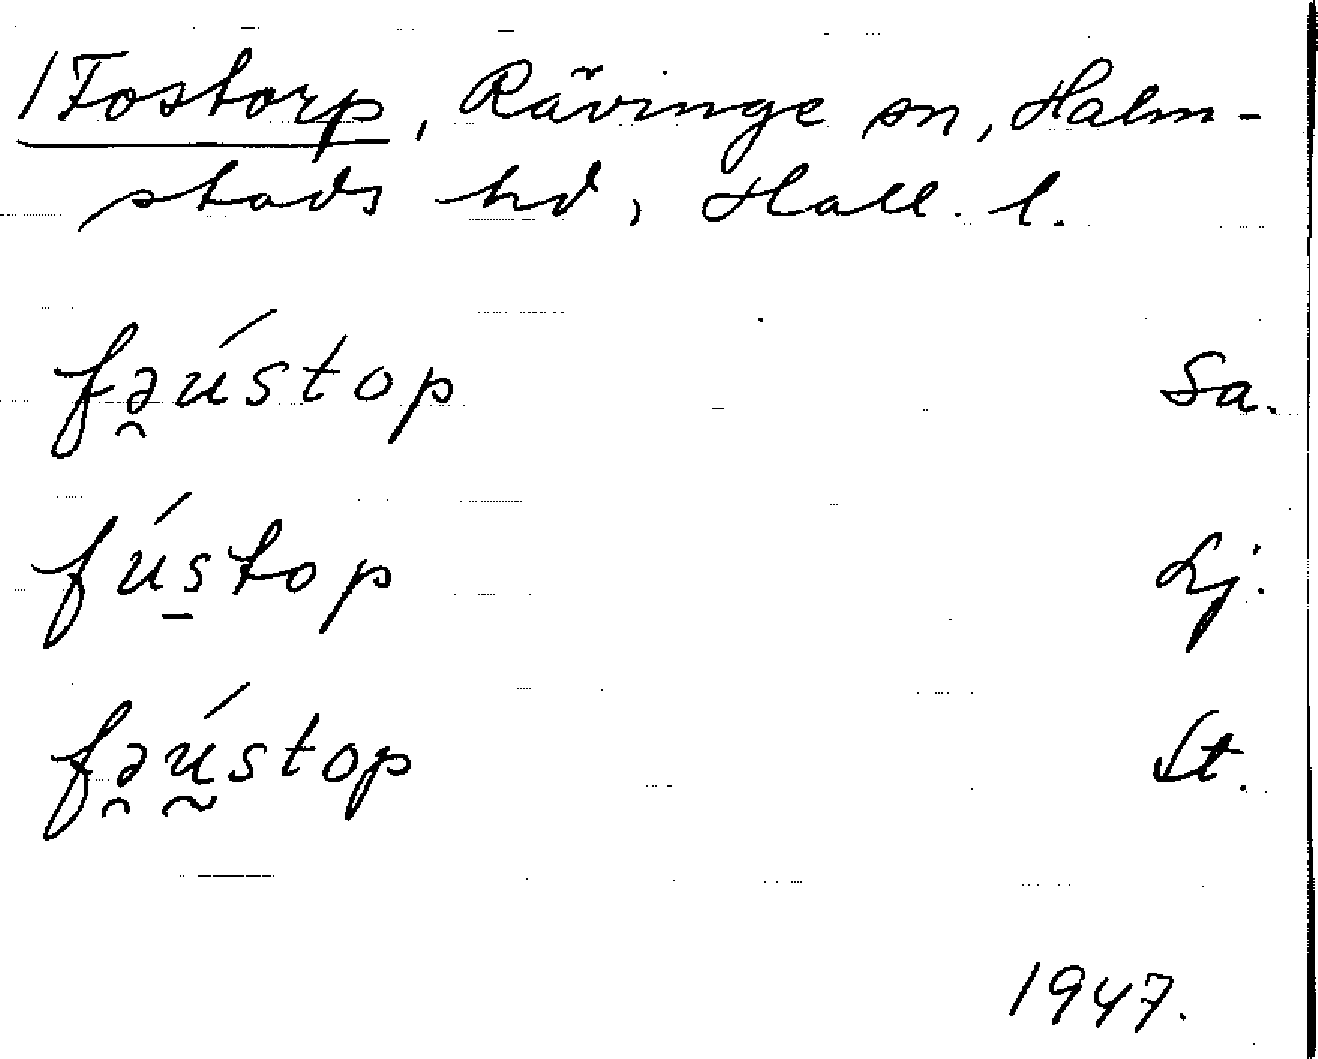 /Fostorp, Rävinge sn, Halm-
stads hd, Hall. l.
fə̯ústop Sa.
fús̲top Lj.
fə̯ṵ́stop St.
1947.